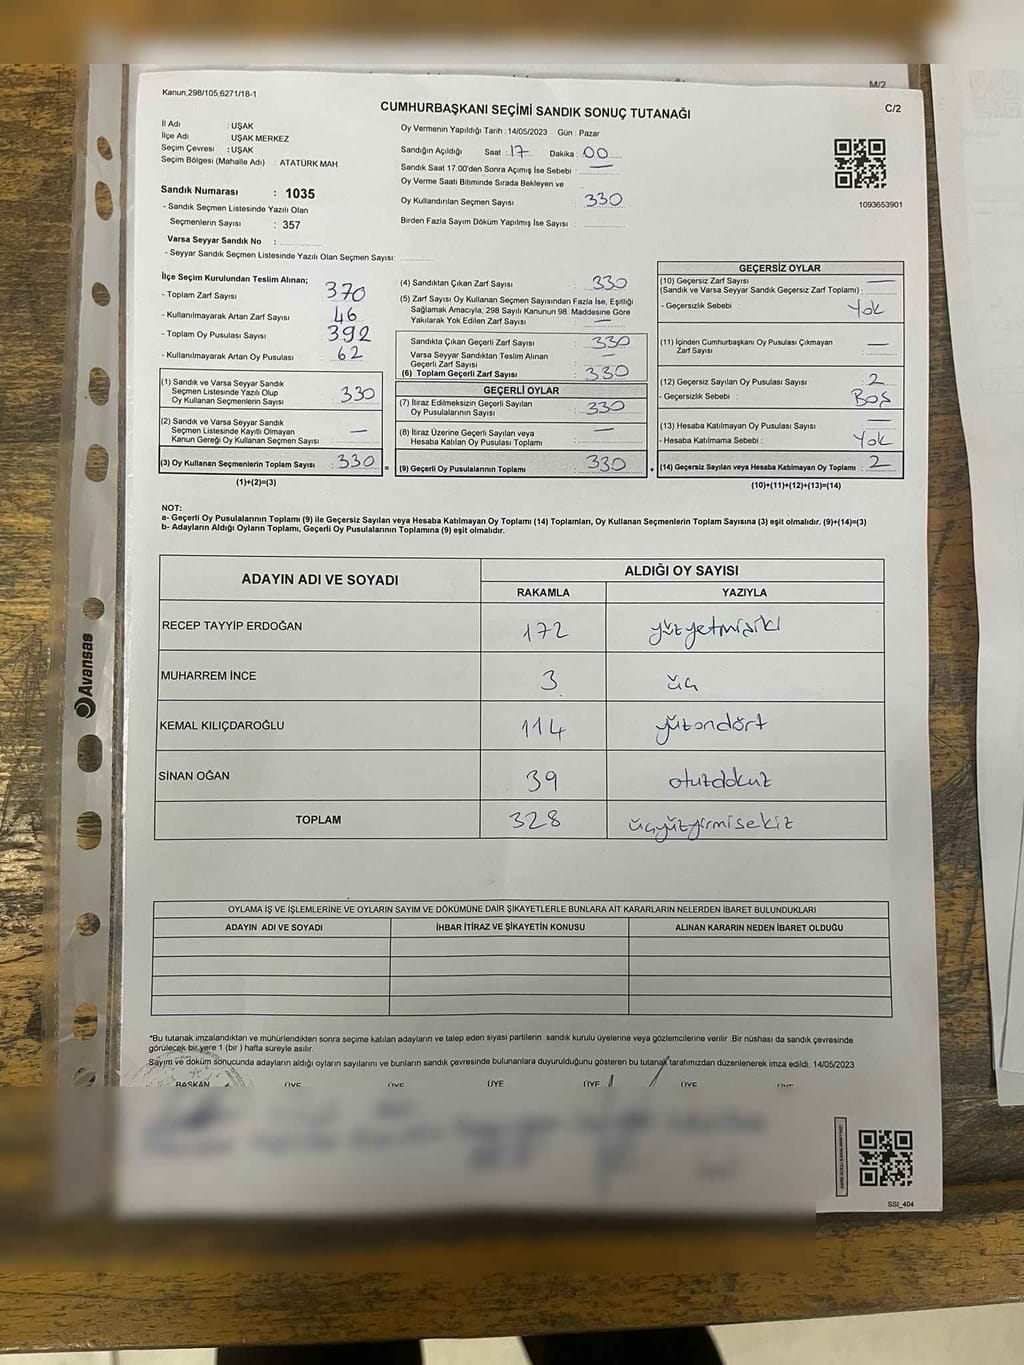 M/2
Kanun,298/105,6271/18-1
C/2
CUMHURBAŞKANI SEÇİMİ SANDIK SONUÇ TUTANAĞI
İl Adı : UŞAK
İlçe Adı : UŞAK MERKEZ
Seçim Çevresi : UŞAK
Seçim Bölgesi (Mahalle Adı) : ATATÜRK MAH
Sandık Numarası : 1035
- Sandık Seçmen Listesinde Yazılı Olan
Seçmenlerin Sayısı : 357
Varsa Seyyar Sandık No :
- Seyyar Sandık Seçmen Listesinde Yazılı Olan Seçmen Sayısı:
Oy Vermenin Yapıldığı Tarih : 14/05/2023 Gün : Pazar
Sandığın Açıldığı Saat 17 Dakika 00
Sandık Saat 17:00'den Sonra Açımış İse Sebebi : —
Oy Verme Saati Bitiminde Sırada Bekleyen ve
Oy Kullandırılan Seçmen Sayısı : 330
Birden Fazla Sayım Döküm Yapılmış İse Sayısı :
1093653901
İlçe Seçim Kurulundan Teslim Alınan;
- Toplam Zarf Sayısı : 370
- Kullanılmayarak Artan Zarf Sayısı : 46
- Toplam Oy Pusulası Sayısı : 392
- Kullanılmayarak Artan Oy Pusulası : 62
(1) Sandık ve Varsa Seyyar Sandık
Seçmen Listesinde Yazılı Olup
Oy Kullanan Seçmenlerin Sayısı : 330
(2) Sandık ve Varsa Seyyar Sandık
Seçmen Listesinde Kayıtlı Olmayan
Kanun Gereği Oy Kullanan Seçmen Sayısı : —
(3) Oy Kullanan Seçmenlerin Toplam Sayısı : 330 =
(1)+(2)=(3)
(4) Sandıktan Çıkan Zarf Sayısı : 330
(5) Zarf Sayısı Oy Kullanan Seçmen Sayısından Fazla İse, Eşitliği
Sağlamak Amacıyla, 298 Sayılı Kanunun 98. Maddesine Göre
Yakılarak Yok Edilen Zarf Sayısı : —
Sandıkta Çıkan Geçerli Zarf Sayısı : 330
Varsa Seyyar Sandıktan Teslim Alınan
Geçerli Zarf Sayısı : —
(6) Toplam Geçerli Zarf Sayısı : 330
GEÇERLİ OYLAR
(7) İtiraz Edilmeksizin Geçerli Sayılan
Oy Pusulalarının Sayısı : 330
(8) İtiraz Üzerine Geçerli Sayılan veya
Hesaba Katılan Oy Pusulası Toplamı : —
(9) Geçerli Oy Pusulalarının Toplamı : 330 +
GEÇERSİZ OYLAR
(10) Geçersiz Zarf Sayısı : —
(Sandık ve Varsa Seyyar Sandık Geçersiz Zarf Toplamı) :
- Geçersizlik Sebebi : Yok
(11) İçinden Cumhurbaşkanı Oy Pusulası Çıkmayan
Zarf Sayısı : —
(12) Geçersiz Sayılan Oy Pusulası Sayısı : 2
- Geçersizlik Sebebi : BOŞ
(13) Hesaba Katılmayan Oy Pusulası Sayısı : —
- Hesaba Katılmama Sebebi : Yok
(14) Geçersiz Sayılan veya Hesaba Katılmayan Oy Toplamı : 2
(10)+(11)+(12)+(13)=(14)
NOT:
a- Geçerli Oy Pusulalarının Toplamı (9) ile Geçersiz Sayılan veya Hesaba Katılmayan Oy Toplamı (14) Toplamları, Oy Kullanan Seçmenlerin Toplam Sayısına (3) eşit olmalıdır. (9)+(14)=(3)
b- Adayların Aldığı Oyların Toplamı, Geçerli Oy Pusulalarının Toplamına (9) eşit olmalıdır.
ADAYIN ADI VE SOYADI
ALDIĞI OY SAYISI
RAKAMLA YAZIYLA
RECEP TAYYİP ERDOĞAN 172 yüzyetmişiki
MUHARREM İNCE 3 üç
KEMAL KILIÇDAROĞLU 114 yüzondört
SİNAN OĞAN 39 otuzdokuz
TOPLAM 328 üçyüzyirmisekiz
OYLAMA İŞ VE İŞLEMLERİNE VE OYLARIN SAYIM VE DÖKÜMÜNE DAİR ŞİKAYETLERLE BUNLARA AİT KARARLARIN NELERDEN İBARET BULUNDUKLARI
ADAYIN ADI VE SOYADI İHBAR İTİRAZ VE ŞİKAYETİN KONUSU ALINAN KARARIN NEDEN İBARET OLDUĞU
*Bu tutanak imzalandıktan ve mühürlendikten sonra seçime katılan adayların ve talep eden siyasi partilerin sandık kurulu üyelerine veya gözlemcilerine verilir. Bir nüshası da sandık çevresinde
görülecek bir yere 1 (bir ) hafta süreyle asılır.
Sayım ve döküm sonucunda adayların aldığı oyların sayılarını ve bunların sandık çevresinde bulunanlara duyurulduğunu gösteren bu tutanak tarafımızdan düzenlenerek imza edildi. 14/05/2023
BAŞKAN ÜYE ÜYE ÜYE ÜYE ÜYE ÜYE
SSI_404
Avansas